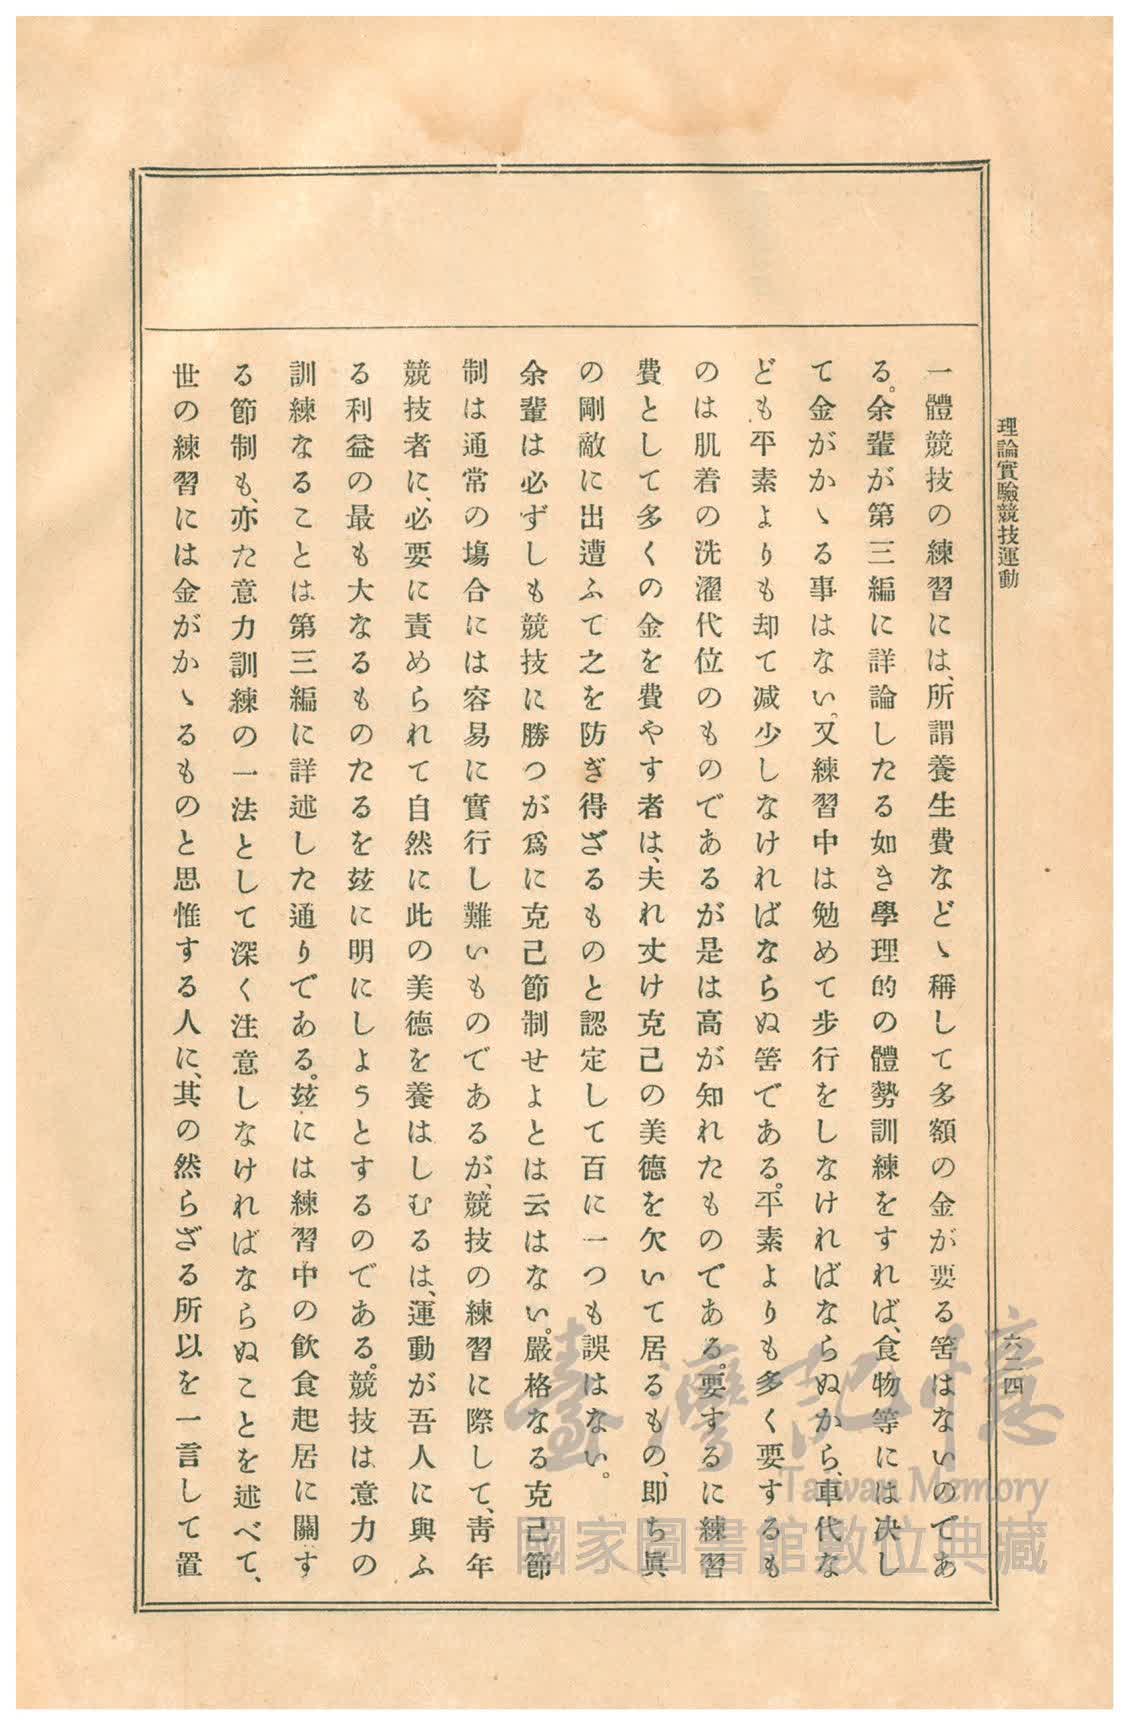 理論實驗競技運動
六二四
一體競技の練習には、所謂養生費などゝ稱して多額の金が要る筈はないのであ
る。余輩が第三編に詳論したる如き學理的の體勢訓練をすれば、食物等には決し
て金がかゝる事はない。又練習中は勉めて步行をしなければならぬから、車代な
ども平素よりも却て減少しなければならぬ筈である。平素よりも多く要するも
のは肌着の洗濯代位のものであるが是は高が知れたものである。要するに練習
費として多くの金を費やす者は、夫れ丈け克己の美德を欠いて居るもの、即ち眞
の剛敵に出遭ふて之を防ぎ得ざるものと認定して百に一つも誤はない。
余輩は必ずしも競技に勝つが爲に克己節制せよとは云はない。嚴格なる克己節
制は通常の塲合には容易に實行し難いものであるが、競技の練習に際して、靑年
競技者に、必要に責められて自然に此の美德を養はしむるは、運動が吾人に與ふ
る利益の最も大なるものたるを玆に明にしようとするのである。競技は意力の
訓練なることは第三編に詳述した通りである。玆には練習中の飮食起居に關す
る節制も、亦た意力訓練の一法として深く注意しなければならぬことを述べて、
世の練習には金がかゝるものと思惟する人に、其の然らざる所以を一言して置
臺灣記憶
Taiwan Memory
國家圖書館數位典藏